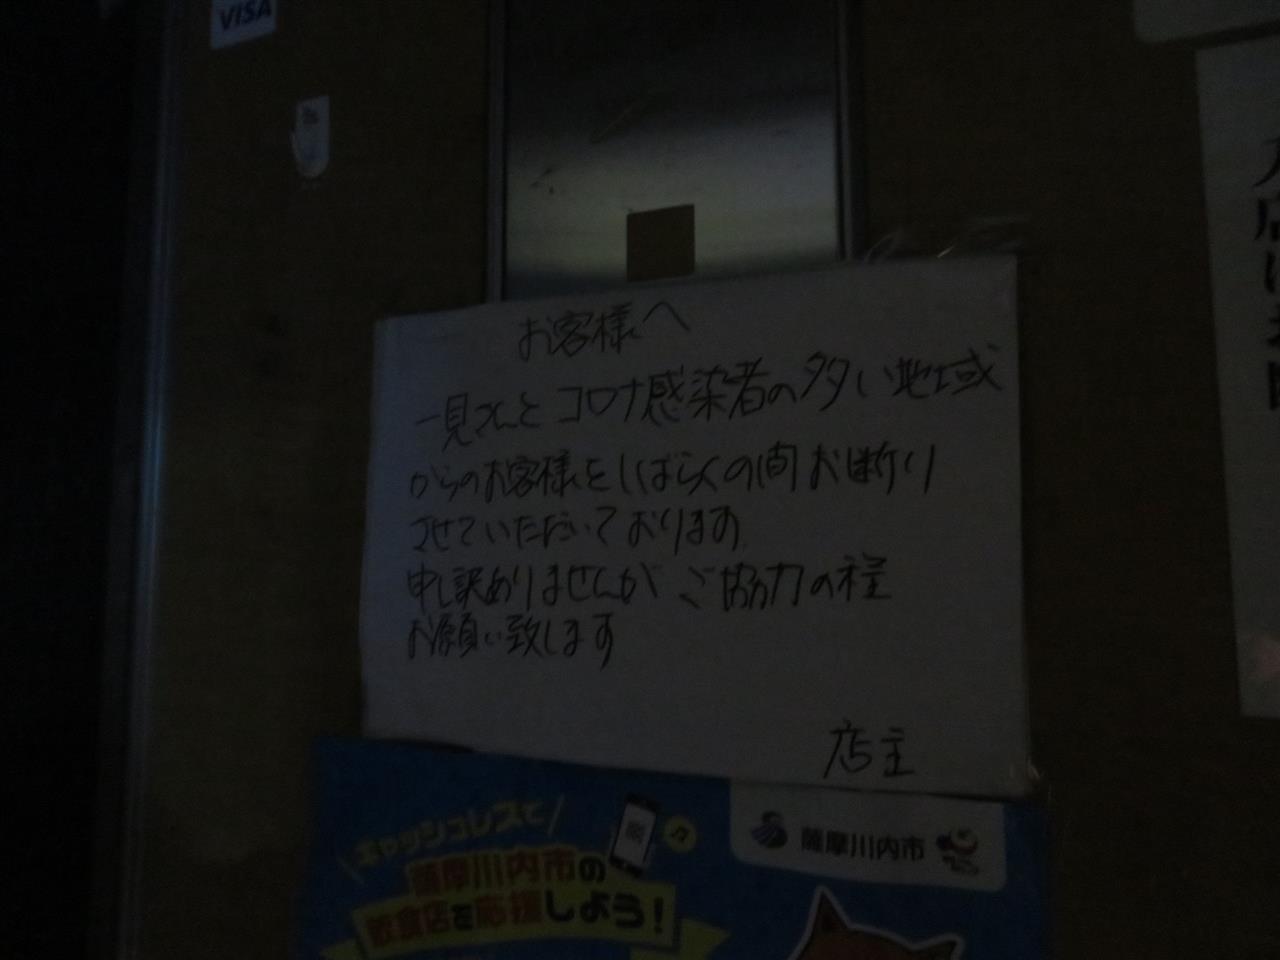 VISA
お客様へ
一見さんと コロナ感染者の多い地域
からのお客様をしばらくの間お断り
させていただいております
申し訳ありませんが ご協力の程
お願い致します
店主
キャッシュレスで
薩摩川内市の
飲食店を応援しよう!
薩摩川内市